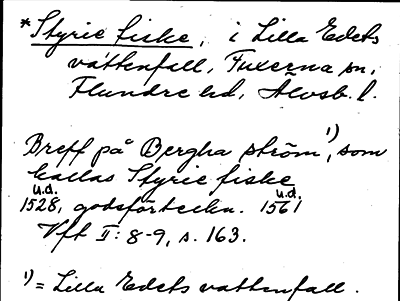 *Styric fiske, i Lilla Edets
vattenfall, Fuxerna sn,
Flundre hd, Älvsb. l.
Breff på Bergha ström¹⁾, som
kallas Styric fiske
u.d. u.d.
1528, godsförteckn. 1561
Vft II: 8-9, s. 163.
¹⁾ = Lilla Edets vattenfall.